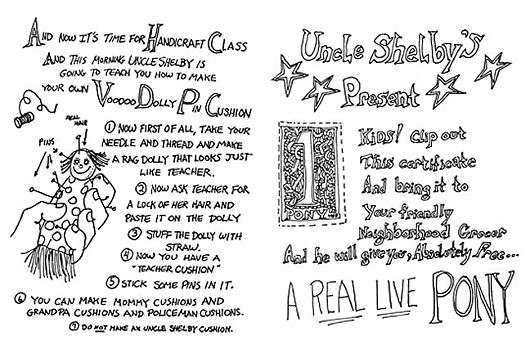 AND NOW IT'S TIME FOR HANDICRAFT CLASS
AND THIS MORNING UNCLE SHELBY IS
GOING TO TEACH YOU HOW TO MAKE
YOUR OWN VOODOO DOLLY PIN CUSHION
REAL HAIR
PINS
① NOW FIRST OF ALL, TAKE YOUR
NEEDLE AND THREAD AND MAKE
A RAG DOLLY THAT LOOKS JUST
LIKE TEACHER.
② NOW ASK TEACHER FOR
A LOCK OF HER HAIR AND
PASTE IT ON THE DOLLY
③ STUFF THE DOLLY WITH
STRAW.
④ NOW YOU HAVE A
"TEACHER CUSHION"
⑤ STICK SOME PINS IN IT.
⑥ YOU CAN MAKE MOMMY CUSHIONS AND
GRANDPA CUSHIONS AND POLICEMAN CUSHIONS.
⑦ DO NOT MAKE AN UNCLE SHELBY CUSHION.
Uncle Shelby's
Present
1
PONY
Kids! Clip out
This certificate
And bring it to
Your friendly
Neighborhood Grocer
And he will give you, Absolutely Free...
A REAL LIVE PONY